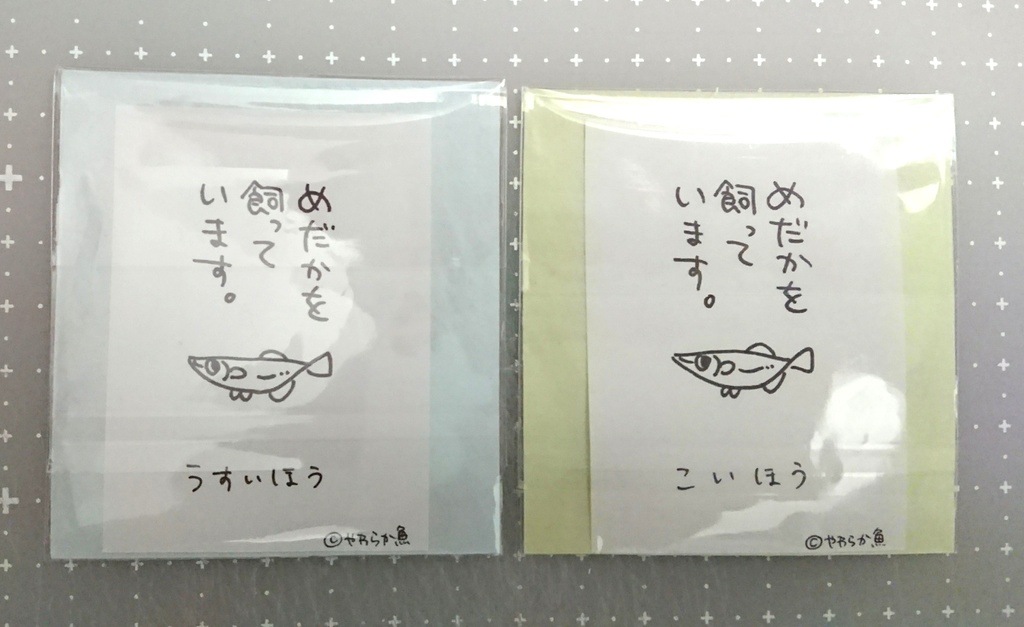 めだかを
飼って
います。
うすいほう
©やわらか魚
めだかを
飼って
います。
こいほう
©やわらか魚